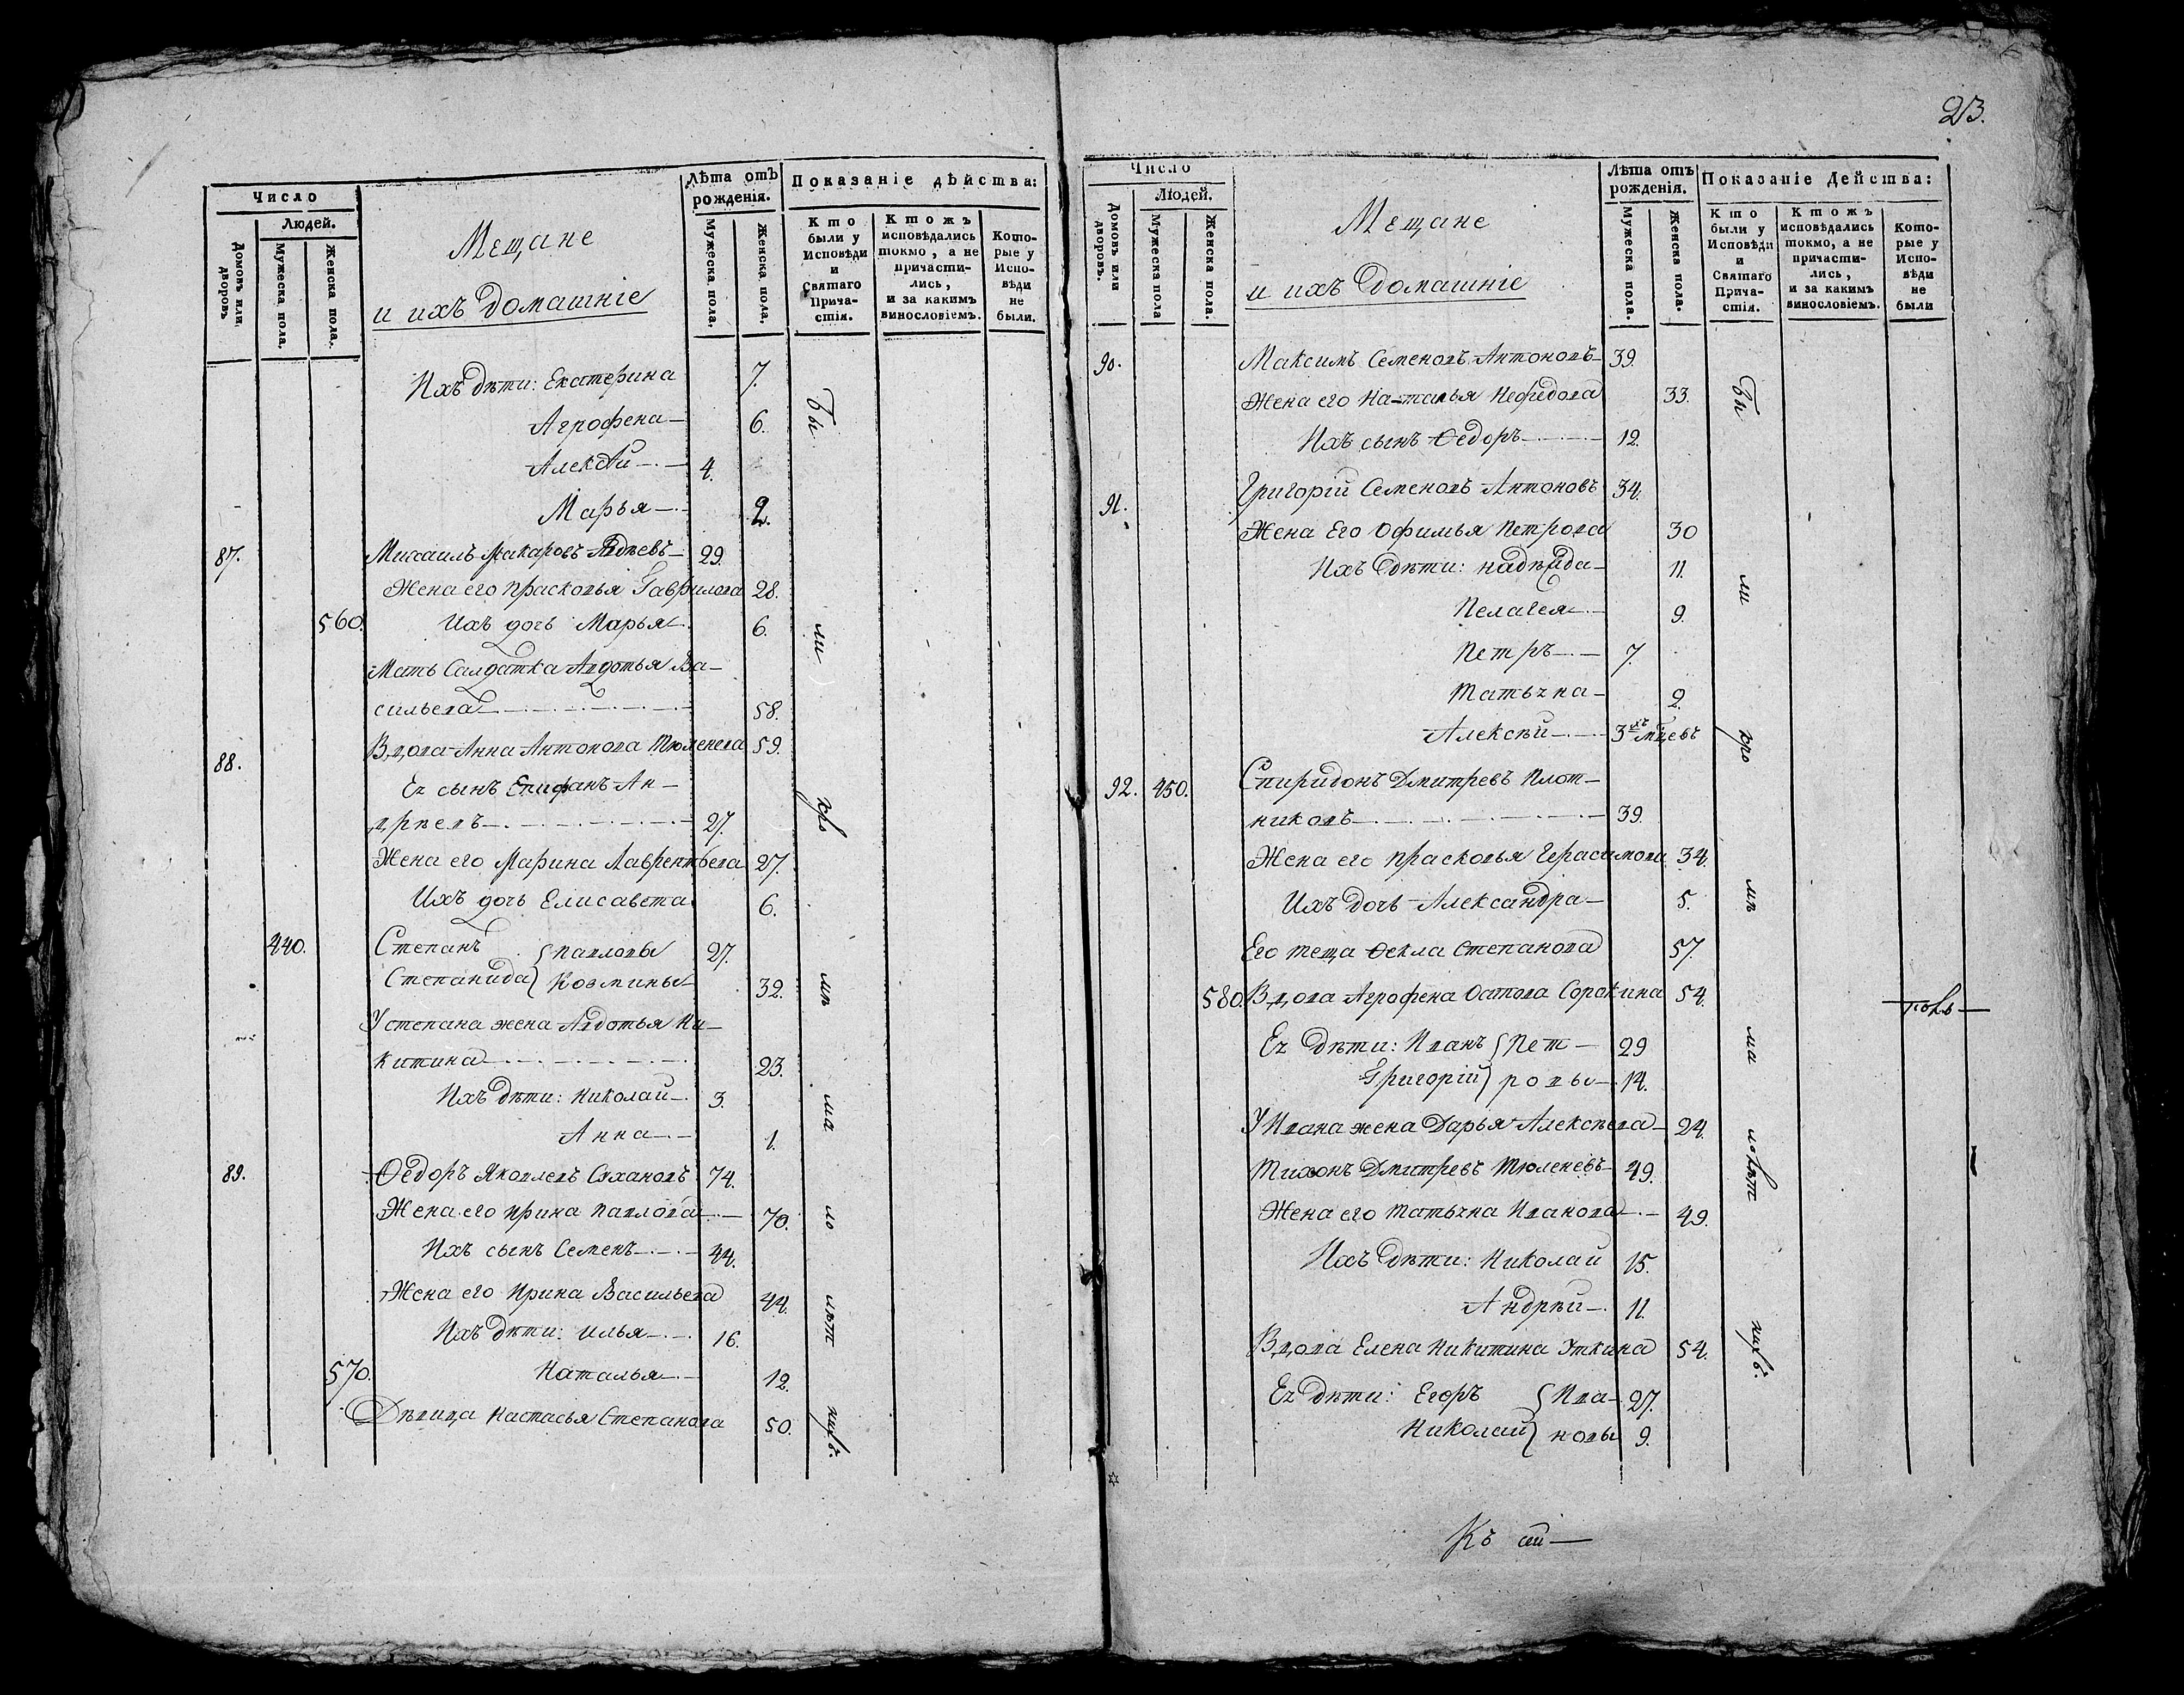 23.
Число
Людей.
Домовъ или дворовъ.
Мужеска пола.
Женска пола.
Мещане
и ихъ домашнïе
Лѣта отъ рожденïя.
Мужеска пола.
Женска пола.
Показанïе дѣйства:
Кто были у Исповѣди и Святаго Прича-стïя.
Ктожъ исповѣдались токмо, а не причасти-лись, и за какимъ винословïемъ.
Кото-рые у Испо-вѣди не были.
Ихъ дѣти: Екатерина 7.
Агрофена 6.
Алексѣй 4.
Марья 2.
87. Михаилъ Макаровъ 29.
Жена его Прасковья Гаврилова 28.
560. Ихъ дочь Марья 6.
Мать Салдатка Авдотья Ва-
сильева 58.
88. Вдова Анна Антонова Тюленева 59.
Ея сынъ Епифанъ Ан-
дрѣевъ 27.
Жена его Марина Лаврентьева 27.
Ихъ дочь Елисавета 6.
440. Степанъ } Павловы 27.
Степанида } Козмины 32.
У степана жена Авдотья Ни-
китина 23.
Ихъ дѣти: Николай 3.
Анна 1.
89. Ѳедоръ Яковлевъ Сухановъ 74.
Жена его Ирина Павлова 70.
Ихъ сынъ Семенъ 44.
Жена его Ирина Васильева 44.
Ихъ дѣти: Илья 16.
570. Наталья 12.
Дѣвица Настасья Степанова 50.
Бы
ли
мѣ
ма
ло
лѣт
нихъ.
Число
Людей.
Домовъ или дворовъ.
Мужеска пола
Женска пола.
Мещане
и ихъ домашнïе
Лѣта отъ рожденïя.
Мужеска пола.
Женска пола.
Показанïе Действа:
Кто были у Исповѣди и Святаго Прича-стïя.
Ктожъ исповѣдались токмо, а не причасти-лись, и за какимъ винословïемъ.
Кото-рые у Испо-вѣди не были
90. Максимъ Семеновъ Антоновъ 39.
Жена его Наталья Нефедова 33.
Ихъ сынъ Ѳедоръ 12.
91. Григорïй Семеновъ Антоновъ 34.
Жена Его Офимья Петрова 30
Ихъ дѣти: надѣжда 11.
Пелагея 9.
Петръ 7.
Татьяна 2.
Алексѣй 3хъ мцевъ
92. 450. Спиридонъ Дмитревъ Плот-
никовъ 39.
Жена его Прасковья Герасимова 34.
Ихъ дочь Александра 5.
Его теща Ѳекла Степанова 57.
580. Вдова Агрофена Осипова Сорокина 54.
Ея дѣти: Иванъ } Пет- 29
Григорïй } ровы 14.
У Ивана жена Дарья Алексѣева 24.
Тихонъ Дмитревъ Тюленевъ 49.
Жена его Татьяна Иванова 49.
Ихъ дѣти: Николай 15.
Андрѣй 11.
Вдова Елена Никитина Уткина 54.
Ея дѣти: Егоръ } Ива- 27.
Николай } новы 9.
Бы
ли
кро
мѣ
ма
лолѣт
нихъ.